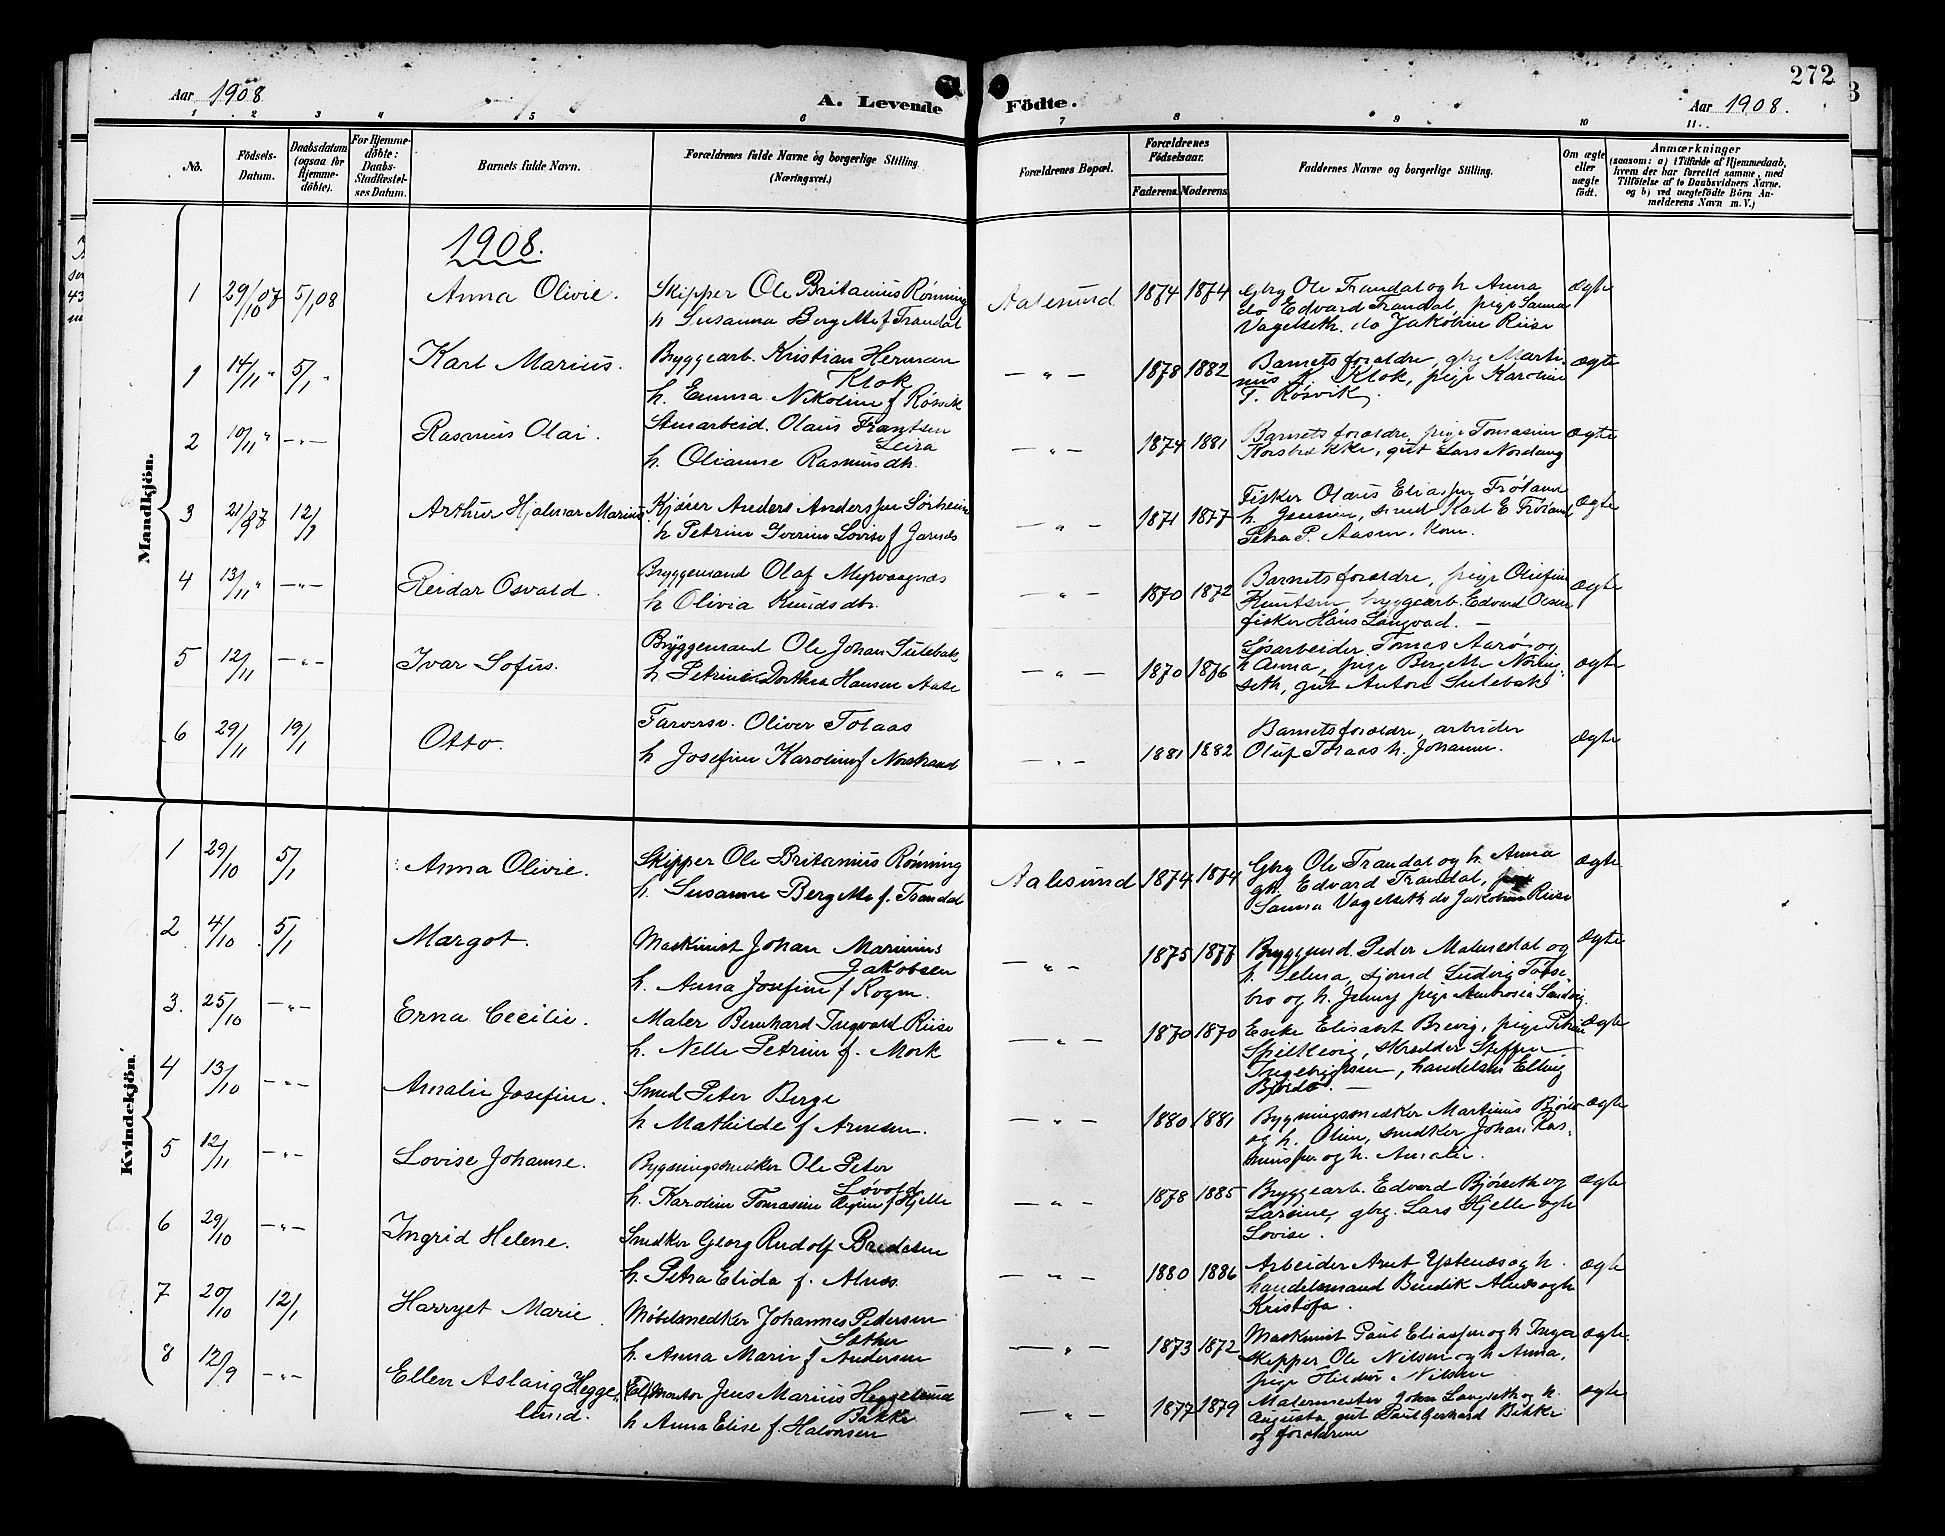 272
Aar 1908
A. Levende
Födte.
Aar 1908.
1 2 3 4 5 6 7 8 9 10 11
No.
Födsels-Datum.
Daabsdatum (ogsaa för Hjemme-döbte).
For Hjemme-döbte: Daabs-Stadfæstel-ses Datum.
Barnets fulde Navn.
Forældrenes fulde Navne og borgerlige Stilling.
(Næringsvei.)
Forældrenes Bopæl.
Forældrenes Födselsaar.
Faderens.
Moderens.
Faddernes Navne og borgerlige Stilling.
Om ægte eller uægte födt.
Anmærkninger
(saasom: a) i Tilfælde af Hjemmedaab,
hvem der har forrettet samme, med
Tilföielse af to Daabsvidners Navne,
og b) ved uægtefödte Börn An-
melderens Navn m. V.)
Mandkjön.
1908.
1 29/10 07 5/1 08 Anna Olivie. Skipper Ole Britanius Rønning
h Susanna Bergitte f Trandal
Aalesund 1874 1874 Gbrg Ole Trandal og h Anna
do Edvard Trandal, pige Sanna
Vagelseth. do Jakobine Riise
Ægte
1 14/11 " 5/1 " Karl Marius. Bryggearb. Kristian Herman
Klok
h. Emma Nikoline f Røsvik
— " — 1878 1882 Barnets foræeldre, gbrg Marti-
nus K. Klok, pige Karoline
T. Røsvik.
Ægte
2 10/11 " — " — Rasmus Olai. Stenarbeid. Olaus Frantsen
Leira
h. Olianne Rasmusdtr.
— " — 1874 1881 Barnets foræeldre, pige Tomasine
Korsbrekke, gut Lars Nordang
Ægte
3 21/8 07 12/1 Arthur Hjalmar Marius. Kjører Anders Anderssen Sørheim
h Petrine Iverine Lovise f Jarnes
— " — 1871 1877 Fisker Olaus Eliassen Frøland
h. Jensine, smed Karl E Frøland
Petra P. Aasen. Kone.
Ægte
4 13/11 " — " — Reidar Osvald. Bryggemand Olaf Myrvaagnes
h Olivia Knudsdtr.
— " — 1870 1872 Barnets foræeldre, pige Olufine
Knutsen, bryggearb. Edvard Olsen
fisker Hans Langvad. —
Ægte
5 12/11 — " — Ivar Sofus. Bryggemand Ole Johan Sulebak
h Petrine Dorthea Hansen Aase
— " — 1870 1876 Løsarbeider Tomas Aarø og
h Anna, pige Bergitte Nøring-
seth, gut Anton Sulebak
Ægte
6 29/11 19/1 Otto. Farversv. Oliver Tolaas
h Josefine Karoline f Norstrand
— " — 1881 1882 Barnets foræeldre, arbeider
Oluf Tolaas h. Johanne.
Ægte
Kvindekjön.
1 29/10 5/1 Anna Olivie. Skipper Ole Britanius Rønning
h. Susanne Bergitte f. Trandal
Aalesund 1874 1874 Gbrg Ole Trandal og h. Anna
gbr. Edvard Trandal, pige
Sanna Vagelseth do Jakobine Riise
Ægte
2 4/10 5/1 Margot. Maskinist Johan Marinius
Jakobsen
h. Anna Josefine f Rogne.
— " — 1875 1877 Bryggemd. Peder Malmedal og
h. Selma, sjomd Ludvig Torse-
bro og h. Jenny pige Ambrosia Sandvig.
Ægte
3. 25/10 — " — Erna Cecilie. Maler Bernhard Ingvald Riise
h. Nelle Petrine f. Mork
— " — 1870 1870 Enke Elisabt Brevig, pige Petrine
Spilkevig, skrædder Steffen
Ingebrigtsen, handelsm Elling
Bjørdal. —
Ægte
4 13/10 — " — Amalie Josefine. Smed Peter Berge
h Mathilde f Arnesen.
— " — 1880 1881 Bygningssnedker Martinus Bjørlo
og h. Oline, snedker Johan Ras-
mussen og h. Amalie.
Ægte
5 12/11 — " — Lovise Johanne. Bygningssnedker Ole Peter
Løvold
h. Karoline Tomasine f Hjelle
— " — 1878 1885 Bryggearb. Edvard Bjørseth og
Larsine, gbrg. Lars Hjelle og h
Lovise.
Ægte
6 29/10 — " — Ingrid Helene. Snedker Georg Rudolf Bredesen
h. Petra Elida f. Alnes
— " — 1880 1886 Arbeider Arnt Ystenes og h.
handelsmand Bendik Alnes og h
Kristofa.
Ægte
7 20/10 12/1 Harryet Marie. Møbelsnedker Johannes Pedersen
Sether
h. Anna Marie f Andersen
— " — 1873 1872 Maskinist Paul Eliassen og h Inga
skipper Ole Nilsen og h Anna,
pige Hildur Nilsen
Ægte.
8 12/9 — " — Ellen Aslaug Hegge-
lund. Elmontør Jens Marius Heggelund
Bakke
h Anna Elise f. Halvorsen
— " — 1877 1879 Malermester John Langseth og h.
Augusta gut Paul Gerhard Bakke
og foræeldrene
Ægte